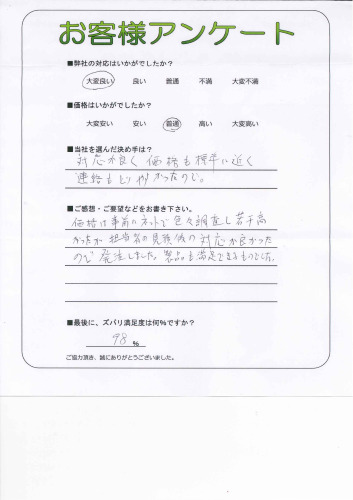 お客様アンケート
■弊社の対応はいかがでしたか？
大変良い 良い 普通 不満 大変不満
■価格はいかがでしたか？
大変安い 安い 普通 高い 大変高い
■当社を選んだ決め手は？
対応が良く 価格も標準に近く
連絡もとりやすかったので。
■ご感想・ご要望などをお書き下さい。
価格は事前にネットで色々調査し若干高
かったが 担当者の見積後の対応が良かった
ので 発注しました。製品も満足できるものでした。
■最後に、ズバリ満足度は何%ですか？
98 %
ご協力頂き、誠にありがとうございました。